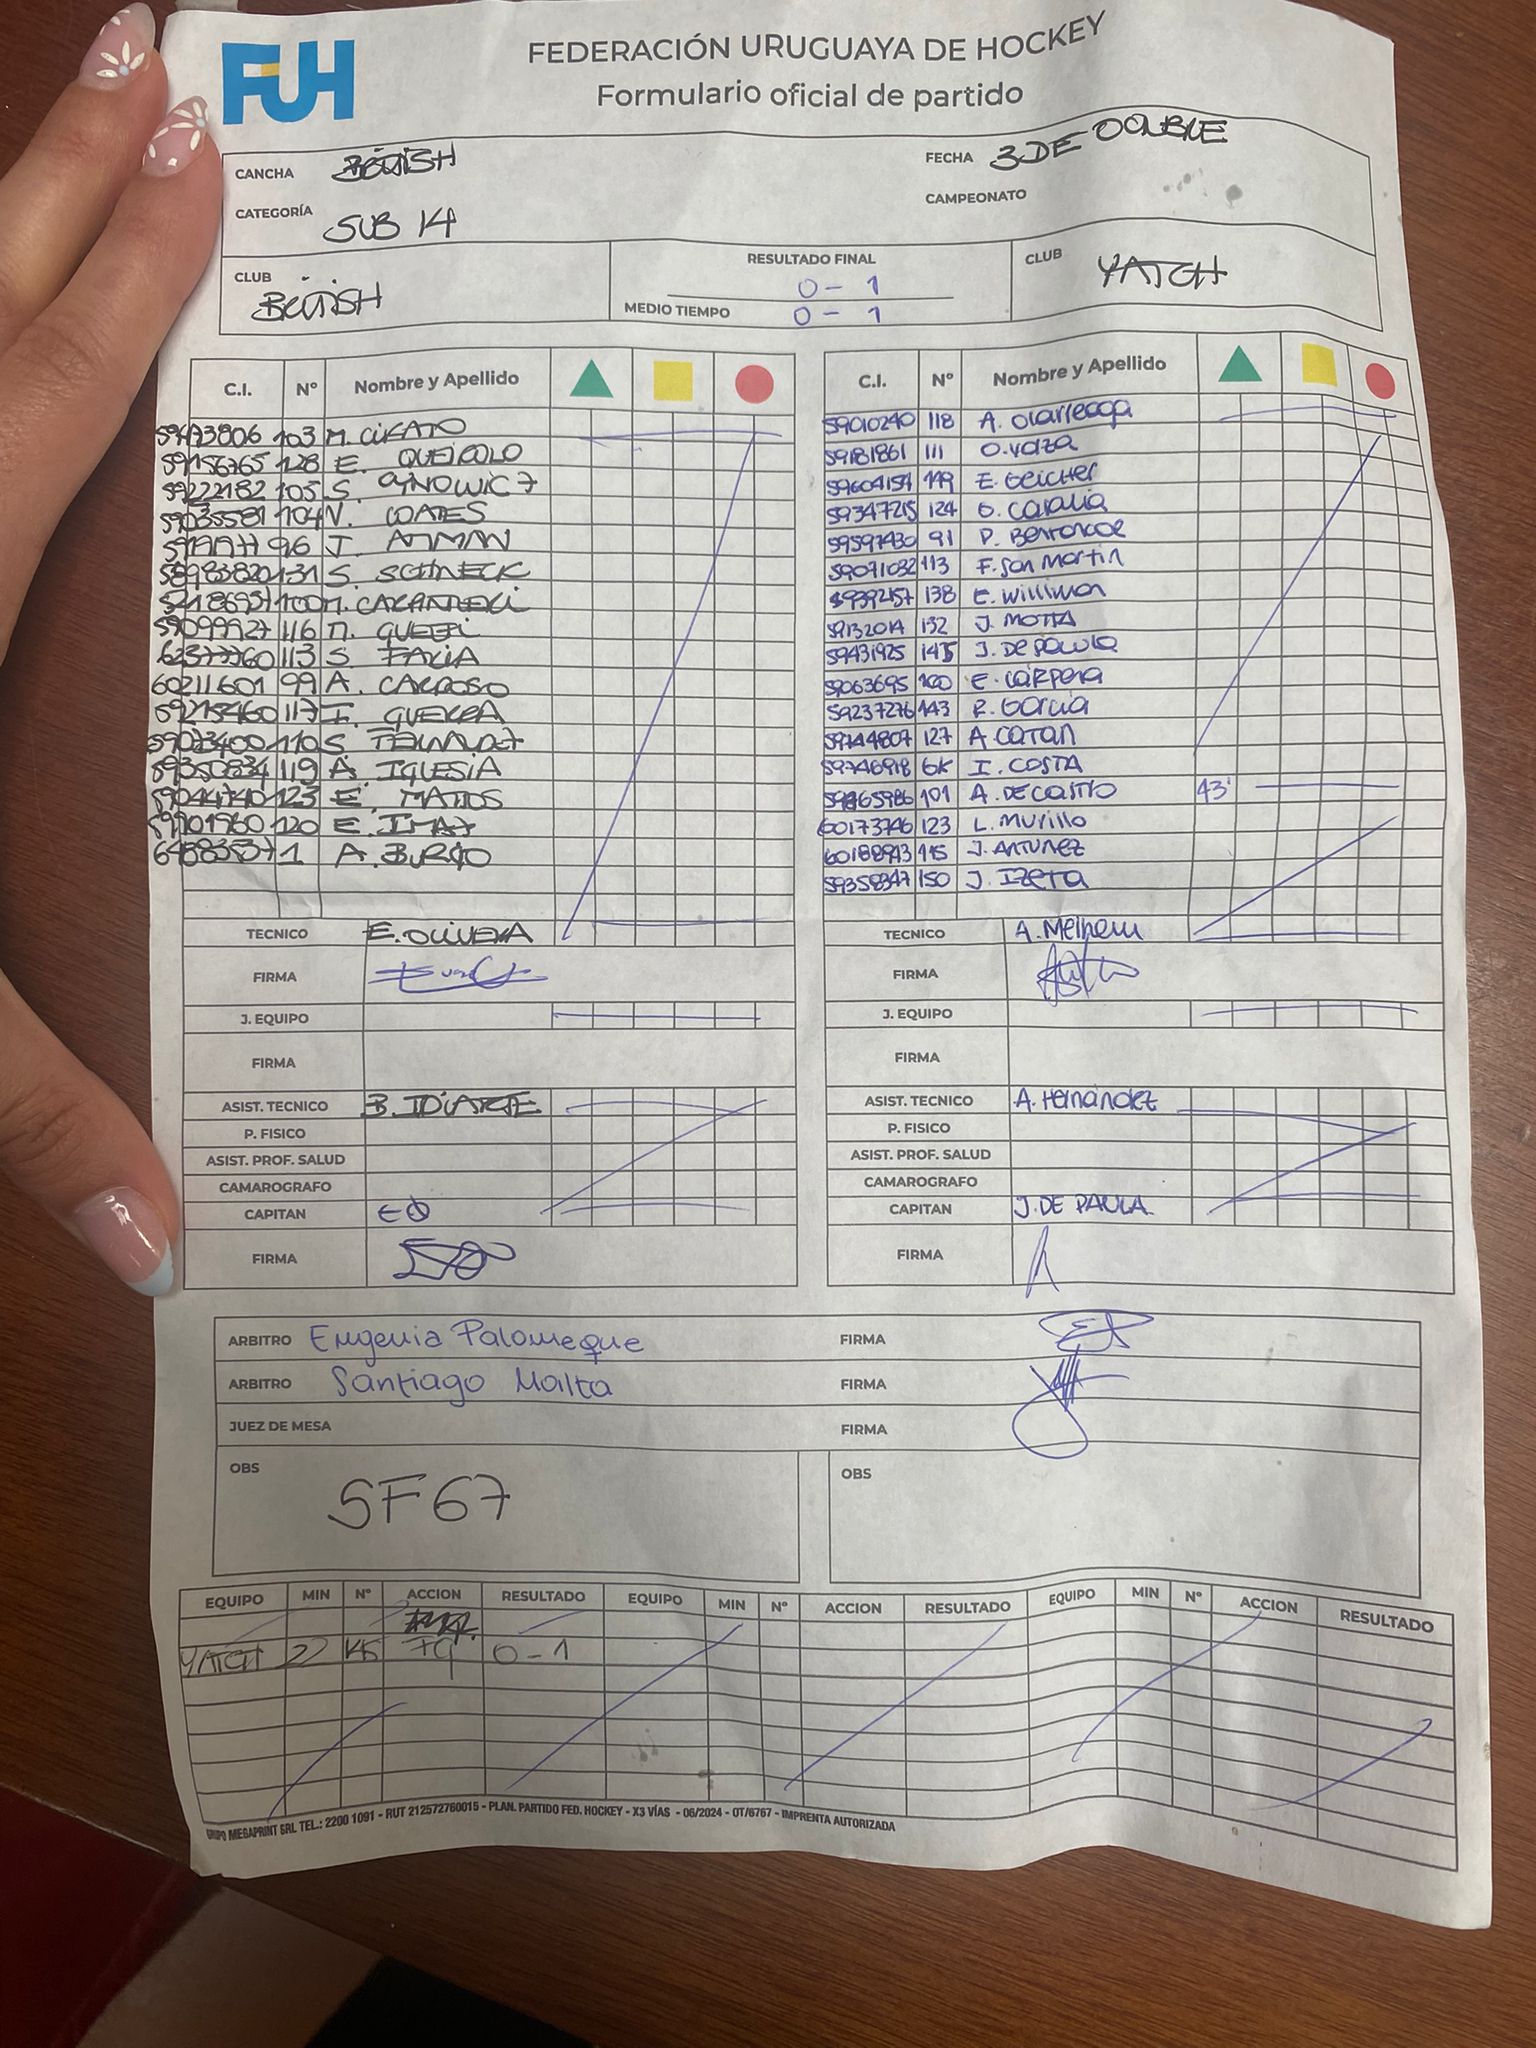 FUH
FEDERACIÓN URUGUAYA DE HOCKEY
Formulario oficial de partido
CANCHA BRITISH
FECHA 3 DE OCTUBRE
CATEGORÍA SUB 14
CAMPEONATO
CLUB BRITISH
RESULTADO FINAL 0 - 1
MEDIO TIEMPO 0 - 1
CLUB YATCH
C.I. Nº Nombre y Apellido
103 M.
128 E. QUEIROLO
59222182 105 S.
104 N. COATES
96 J.
58983820 131 S. SCHNECK
100 M.
59099927 116
113 S. FARIA
60211601 99 A. CARDOSO
117 I. GUERRA
110 S.
59350834 119 A. IGLESIA
59044740 123 E. MATTOS
120 E.
1 A.
TECNICO E. OLIVERA
FIRMA
J. EQUIPO
FIRMA
ASIST. TECNICO B. IDIARTE
P. FISICO
ASIST. PROF. SALUD
CAMAROGRAFO
CAPITAN
FIRMA
C.I. Nº Nombre y Apellido
59010240 118 A. Olarreaga
59181861 111 O.
59604154 E.
59347215 124
91 P.
59071032 113 F. San Martin
138 E. Williman
132 J. MOTTA
59431925 145 J. De Paula
59063695 100 E.
59237276 143 R. Garcia
59744807 127 A CATAN
I. COSTA
101 A. DE CASTRO 43'
60173746 123 L. Murillo
J. ANTUNEZ
59358347 150 J. IZETA
TECNICO A. Melhem
FIRMA
J. EQUIPO
FIRMA
ASIST. TECNICO A. Hernández
P. FISICO
ASIST. PROF. SALUD
CAMAROGRAFO
CAPITAN J. DE PAULA
FIRMA
ARBITRO Eugenia Palomeque FIRMA
ARBITRO Santiago Malta FIRMA
JUEZ DE MESA FIRMA
OBS SF67
OBS
EQUIPO MIN Nº ACCION RESULTADO EQUIPO MIN Nº ACCION RESULTADO EQUIPO MIN Nº ACCION RESULTADO
YATCH 22 145 0 - 1
GRUPO MEGAPRINT SRL TEL.: 2200 1091 - RUT 212572760015 - PLAN. PARTIDO FED. HOCKEY - X3 VÍAS - 06/2024 - OT/6767 - IMPRENTA AUTORIZADA